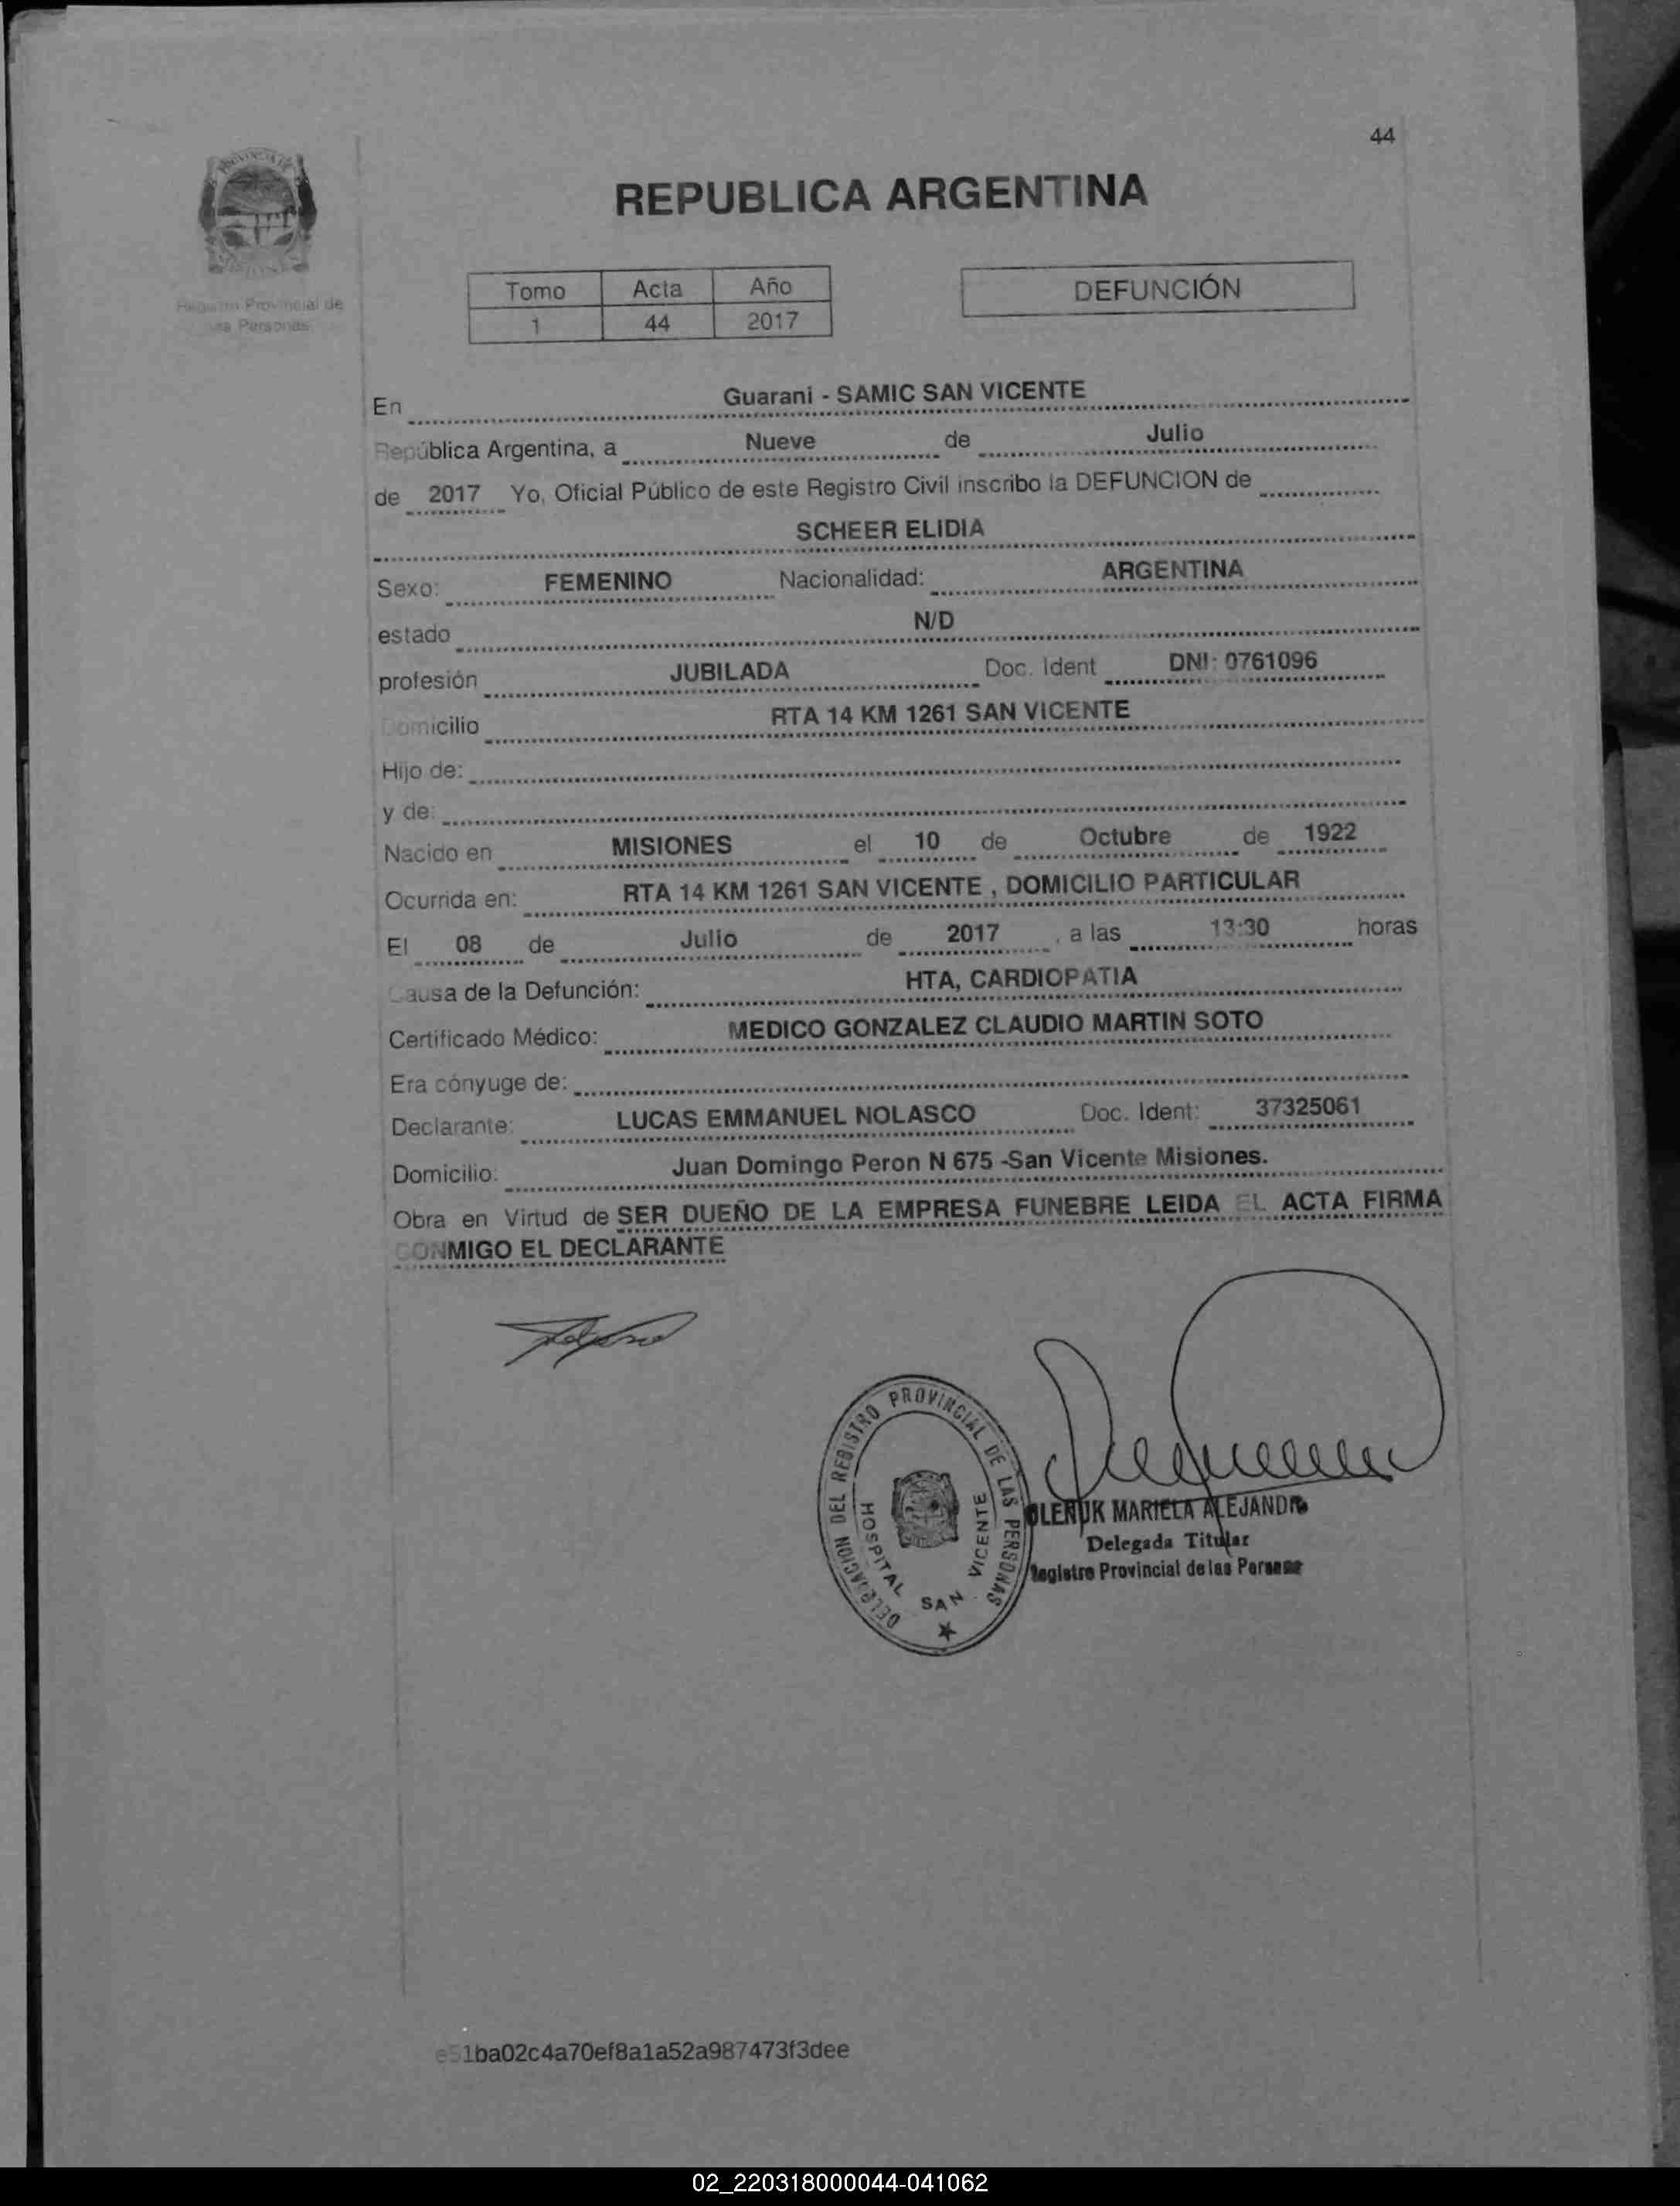 44
PROVINCIA DE
MISIONES
Registro Provincial de
las Personas
REPUBLICA ARGENTINA
Tomo Acta Año
1 44 2017
DEFUNCIÓN
En Guarani - SAMIC SAN VICENTE
República Argentina, a Nueve de Julio
de 2017 Yo, Oficial Público de este Registro Civil inscribo la DEFUNCION de
SCHEER ELIDIA
Sexo: FEMENINO Nacionalidad: ARGENTINA
estado N/D
profesión JUBILADA Doc. Ident DNI: 0761096
Domicilio RTA 14 KM 1261 SAN VICENTE
Hijo de:
y de:
Nacido en MISIONES el 10 de Octubre de 1922
Ocurrida en: RTA 14 KM 1261 SAN VICENTE , DOMICILIO PARTICULAR
El 08 de Julio de 2017 , a las 13:30 horas
Causa de la Defunción: HTA, CARDIOPATIA
Certificado Médico: MEDICO GONZALEZ CLAUDIO MARTIN SOTO
Era cónyuge de:
Declarante: LUCAS EMMANUEL NOLASCO Doc. Ident: 37325061
Domicilio: Juan Domingo Peron N 675 -San Vicente Misiones.
Obra en Virtud de SER DUEÑO DE LA EMPRESA FUNEBRE LEIDA EL ACTA FIRMA
CONMIGO EL DECLARANTE
DELEGACION DEL REGISTRO PROVINCIAL DE LAS PERSONAS
HOSPITAL SAN VICENTE
OLENIUK MARIELA ALEJANDRA
Delegada Titular
Registro Provincial de las Personas
e51ba02c4a70ef8a1a52a987473f3dee
02_220318000044-041062